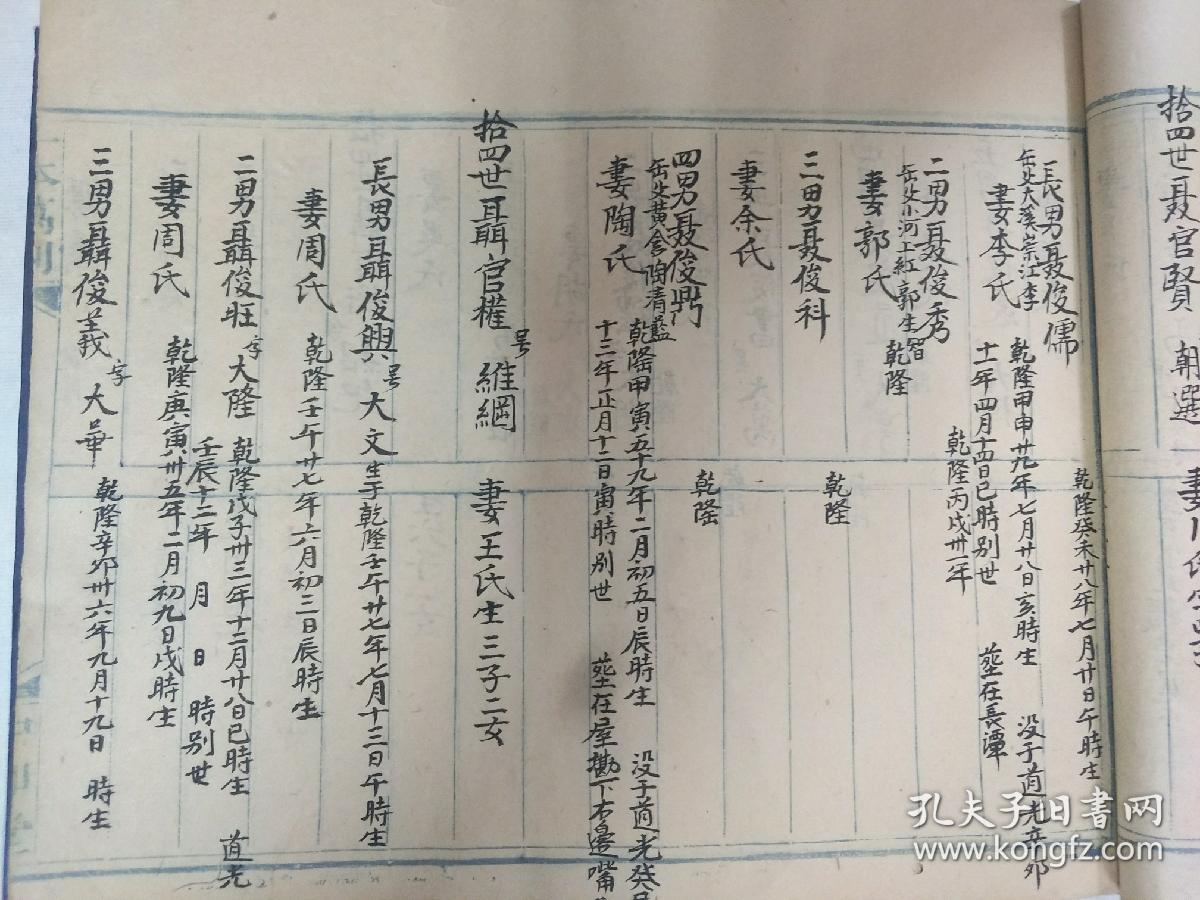 拾四世聂官賢 朝選
長男聂俊儒 乾隆癸未廿八年七月廿日午時生
岳父大溪崇江李
妻李氏 乾隆甲申廿九年七月廿八日亥時生 没于道光辛卯
十一年四月十四日巳時别世 塟在長潭
二男聂俊秀 乾隆丙戌卅一年
岳父小河上紅郭生智
妻郭氏 乾隆
三男聂俊科 乾隆
妻余氏
四男聂俊鼎 乾隆
岳父黄舍陶清藍
妻陶氏 乾隆甲寅五十九年二月初五日辰時生 没于道光癸
十三年正月十二日寅時别世 塟在屋墈下右邊嘴
拾四世聶官權 号維綱 妻王氏生三子二女
長男聶俊興 号大文 生于乾隆壬午廿七年七月十三日午時生
妻周氏 乾隆壬午廿七年六月初三日辰時生
二男聶俊旺 字大隆 乾隆戊子卅三年十二月廿八日巳時生 道光
壬辰十二年 月 日 時别世
妻周氏 乾隆庚寅卅五年二月初九日戌時生
三男聶俊義 字大華 乾隆辛卯卅六年九月十九日 時生
孔夫子旧書网
www.kongfz.com